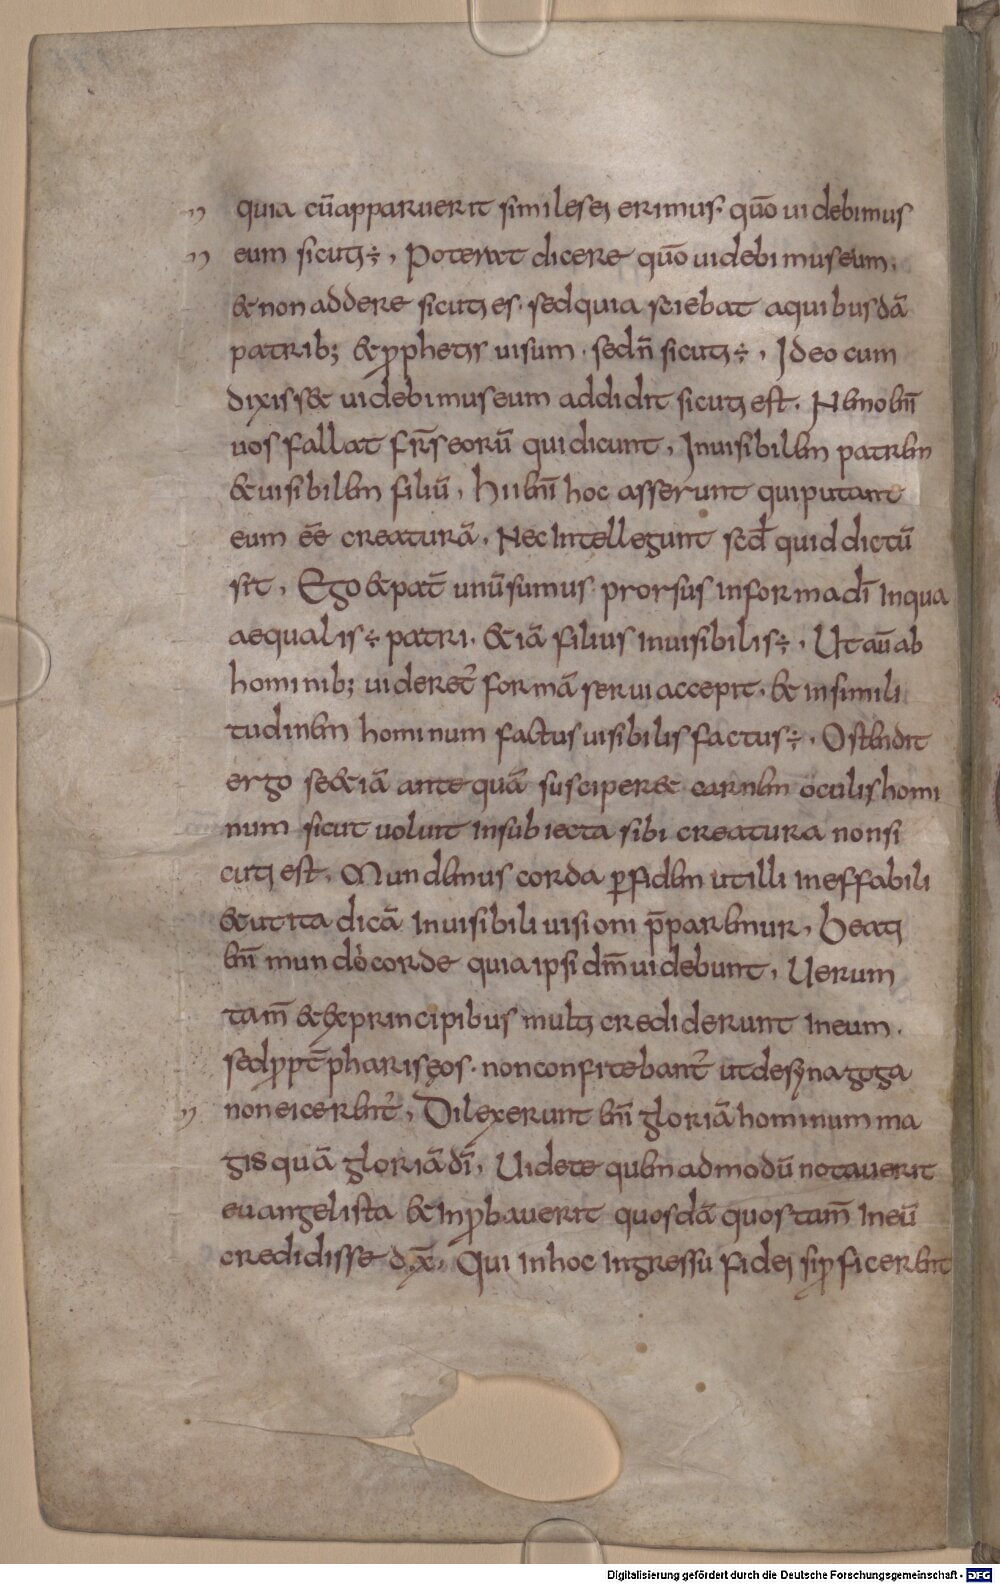 quia cū apparuerit similes ei erimus· quō uidebimus
eum sicuti ÷, Poterat dicere quō uidebimus eum.
& non addere sicuti es· sed quia sciebat a quibusdā
patrib; & p̄phetis uisum· sed n̄ sicuti ÷, Ideo cum
dixiss& uidebimus eum addidit sicuti est, Nemo em̄
uos fallat fr̄s eorū qui dicunt, Inuisibilem patrem
& uisibilem filiū, Hii em̄ hoc asserunt qui putant
eum ēē creaturā, Nec intellegunt scd̄ quid dictū
sit, Ego & pat̄ unū sumus· prorsus in forma dī in qua
aequalis ÷ patri, & iā filius inuisibilis ÷, Ut aū ab
hominib; uideret᷑ formā serui accepit, & in simili
tudinem hominum factus uisibilis factus ÷, Ostendit
ergo se & iā ante quā susciper& carnem oculis homi
num sicut uoluit in subiecta sibi creatura non si
cuti est, Mundemus corda ꝑ fidem ut illi ineffabili
& ut ita dicā inuisibili uisioni p̄paremur, Beati
em̄ mundo corde quia ipsi dm̄ uidebunt, Uerum
tam̄ & ex principibus multi crediderunt in eum.
sed ꝓpt̄ phariseos· non confitebant᷑ ut de synagoga
non eicerent᷑, Dilexerunt em̄ gloriā hominum ma
gis quā gloriā dī, Uidete quem ad modū notauerit
euangelista & inꝓbauerit quosdā quos tam̄ in eū
credidisse dx̄, Qui in hoc ingressu fidei si ꝓficerent
Digitalisierung gefördert durch die Deutsche Forschungsgemeinschaft - DFG